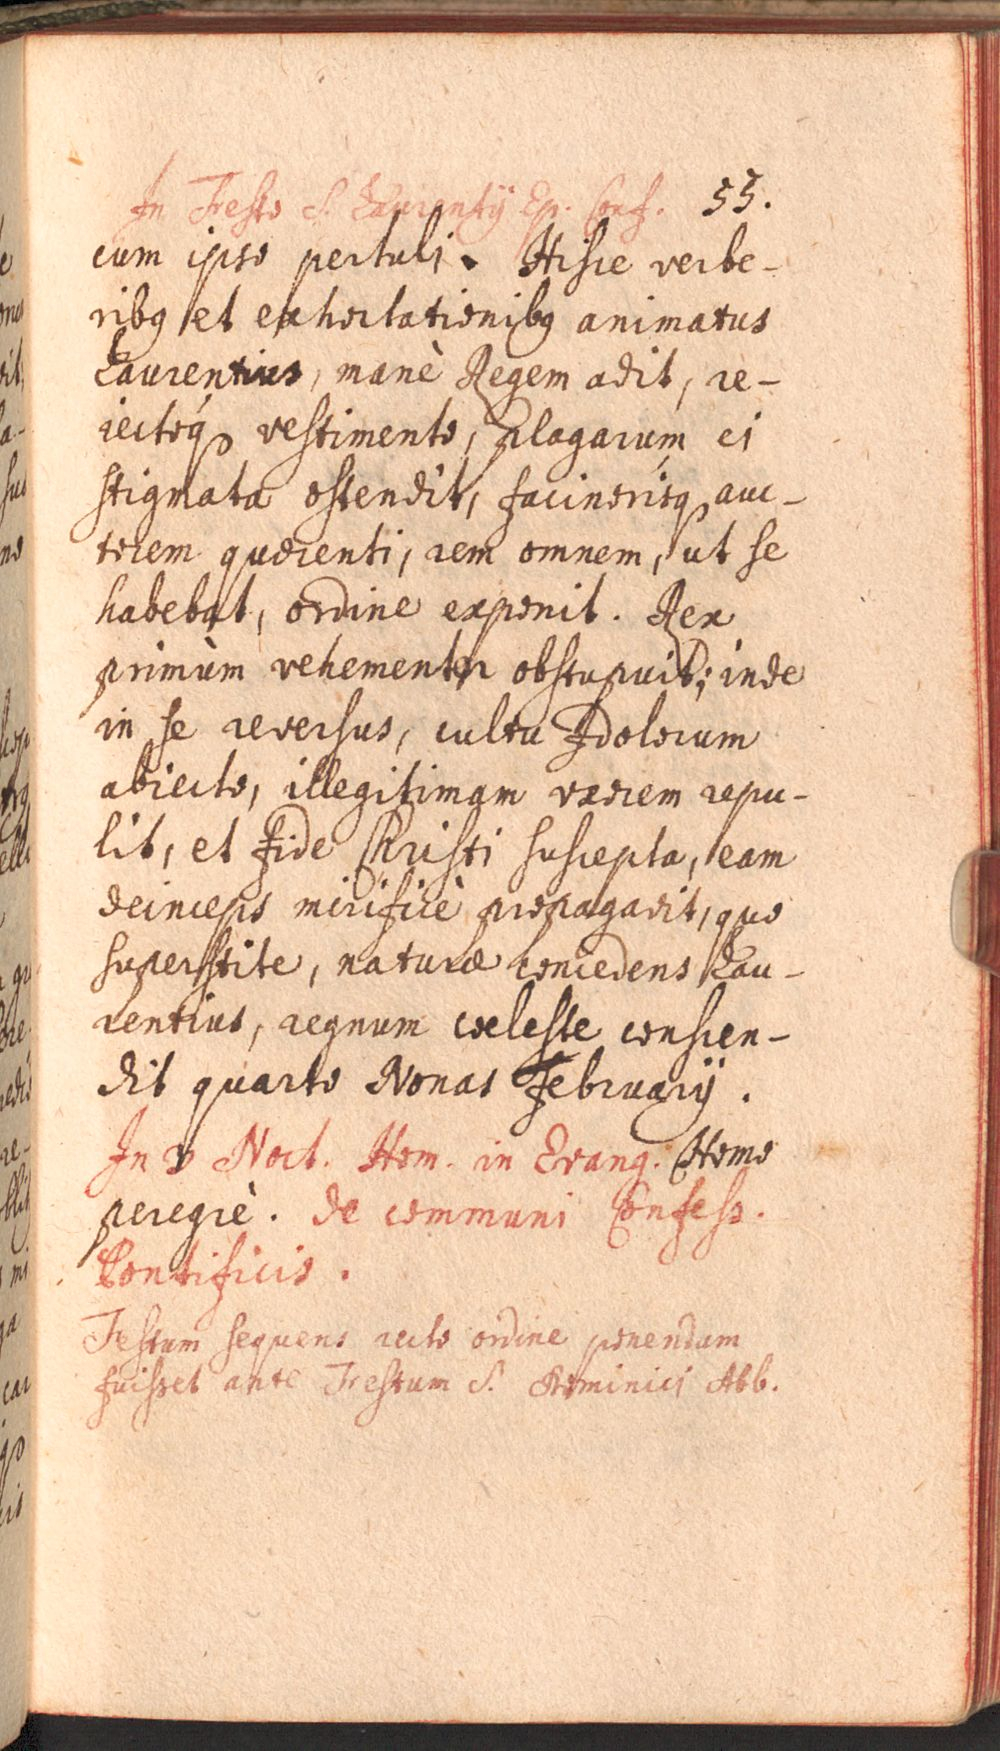 In Festo S. Laurentij Ep. Conf. 55.
cum ipso pertuli. Hisce verbe-
ribq et exhortationibq animatus
Laurentius, manè Regem adit, re-
iectoq́ vestimento, plagarum ei
stigmata ostendit, facinorisq́ auc-
torem quærenti, rem omnem, ut se
habebat, ordine exponit. Rex
primùm vehementer obstupuit; inde
in se reversus, cultu Idolorum
abiecto, illegitimam vxorem repu-
lit, et Fide Christi suscepta, eam
deinceps mirificè propagavit, quo
superstite, naturæ concedens Lau-
rentius, regnum cœleste conscen-
dit quarto Nonas Februarij.
In 3 Noct. Hom. in Evang. Homo
peregrè. de communi Confess.
Pontificis.
Festum sequens recto ordine ponendum
fuisset ante Festum S. Dominici Abb.